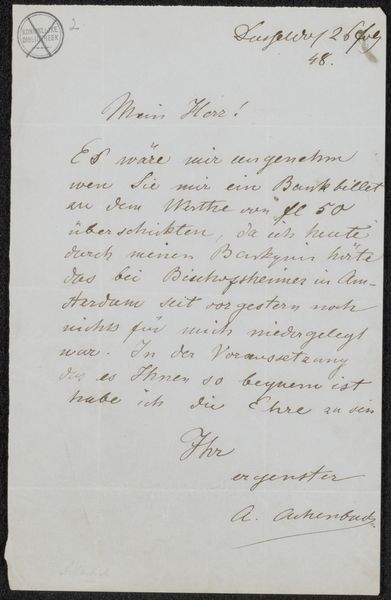 KONINKLIJKE
BIBLIOTHEEK
2
Dusseldorf 26 July
48.
Mein Herr!
Es wäre mir angenehm
wen Sie mir ein Bankbillet
an dem Werthe von fl 50
überschikten, da ich heute
durch meinen Banquir hörte
das bei Bischofsheimer in Am-
sterdam seit vorgestern noch
nichts für mich niedergelegt
war. In der Voraussetzung
das es Ihnen so bequem ist
habe ich die Ehre zu sein
Ihr
ergenster
A. Achenbach